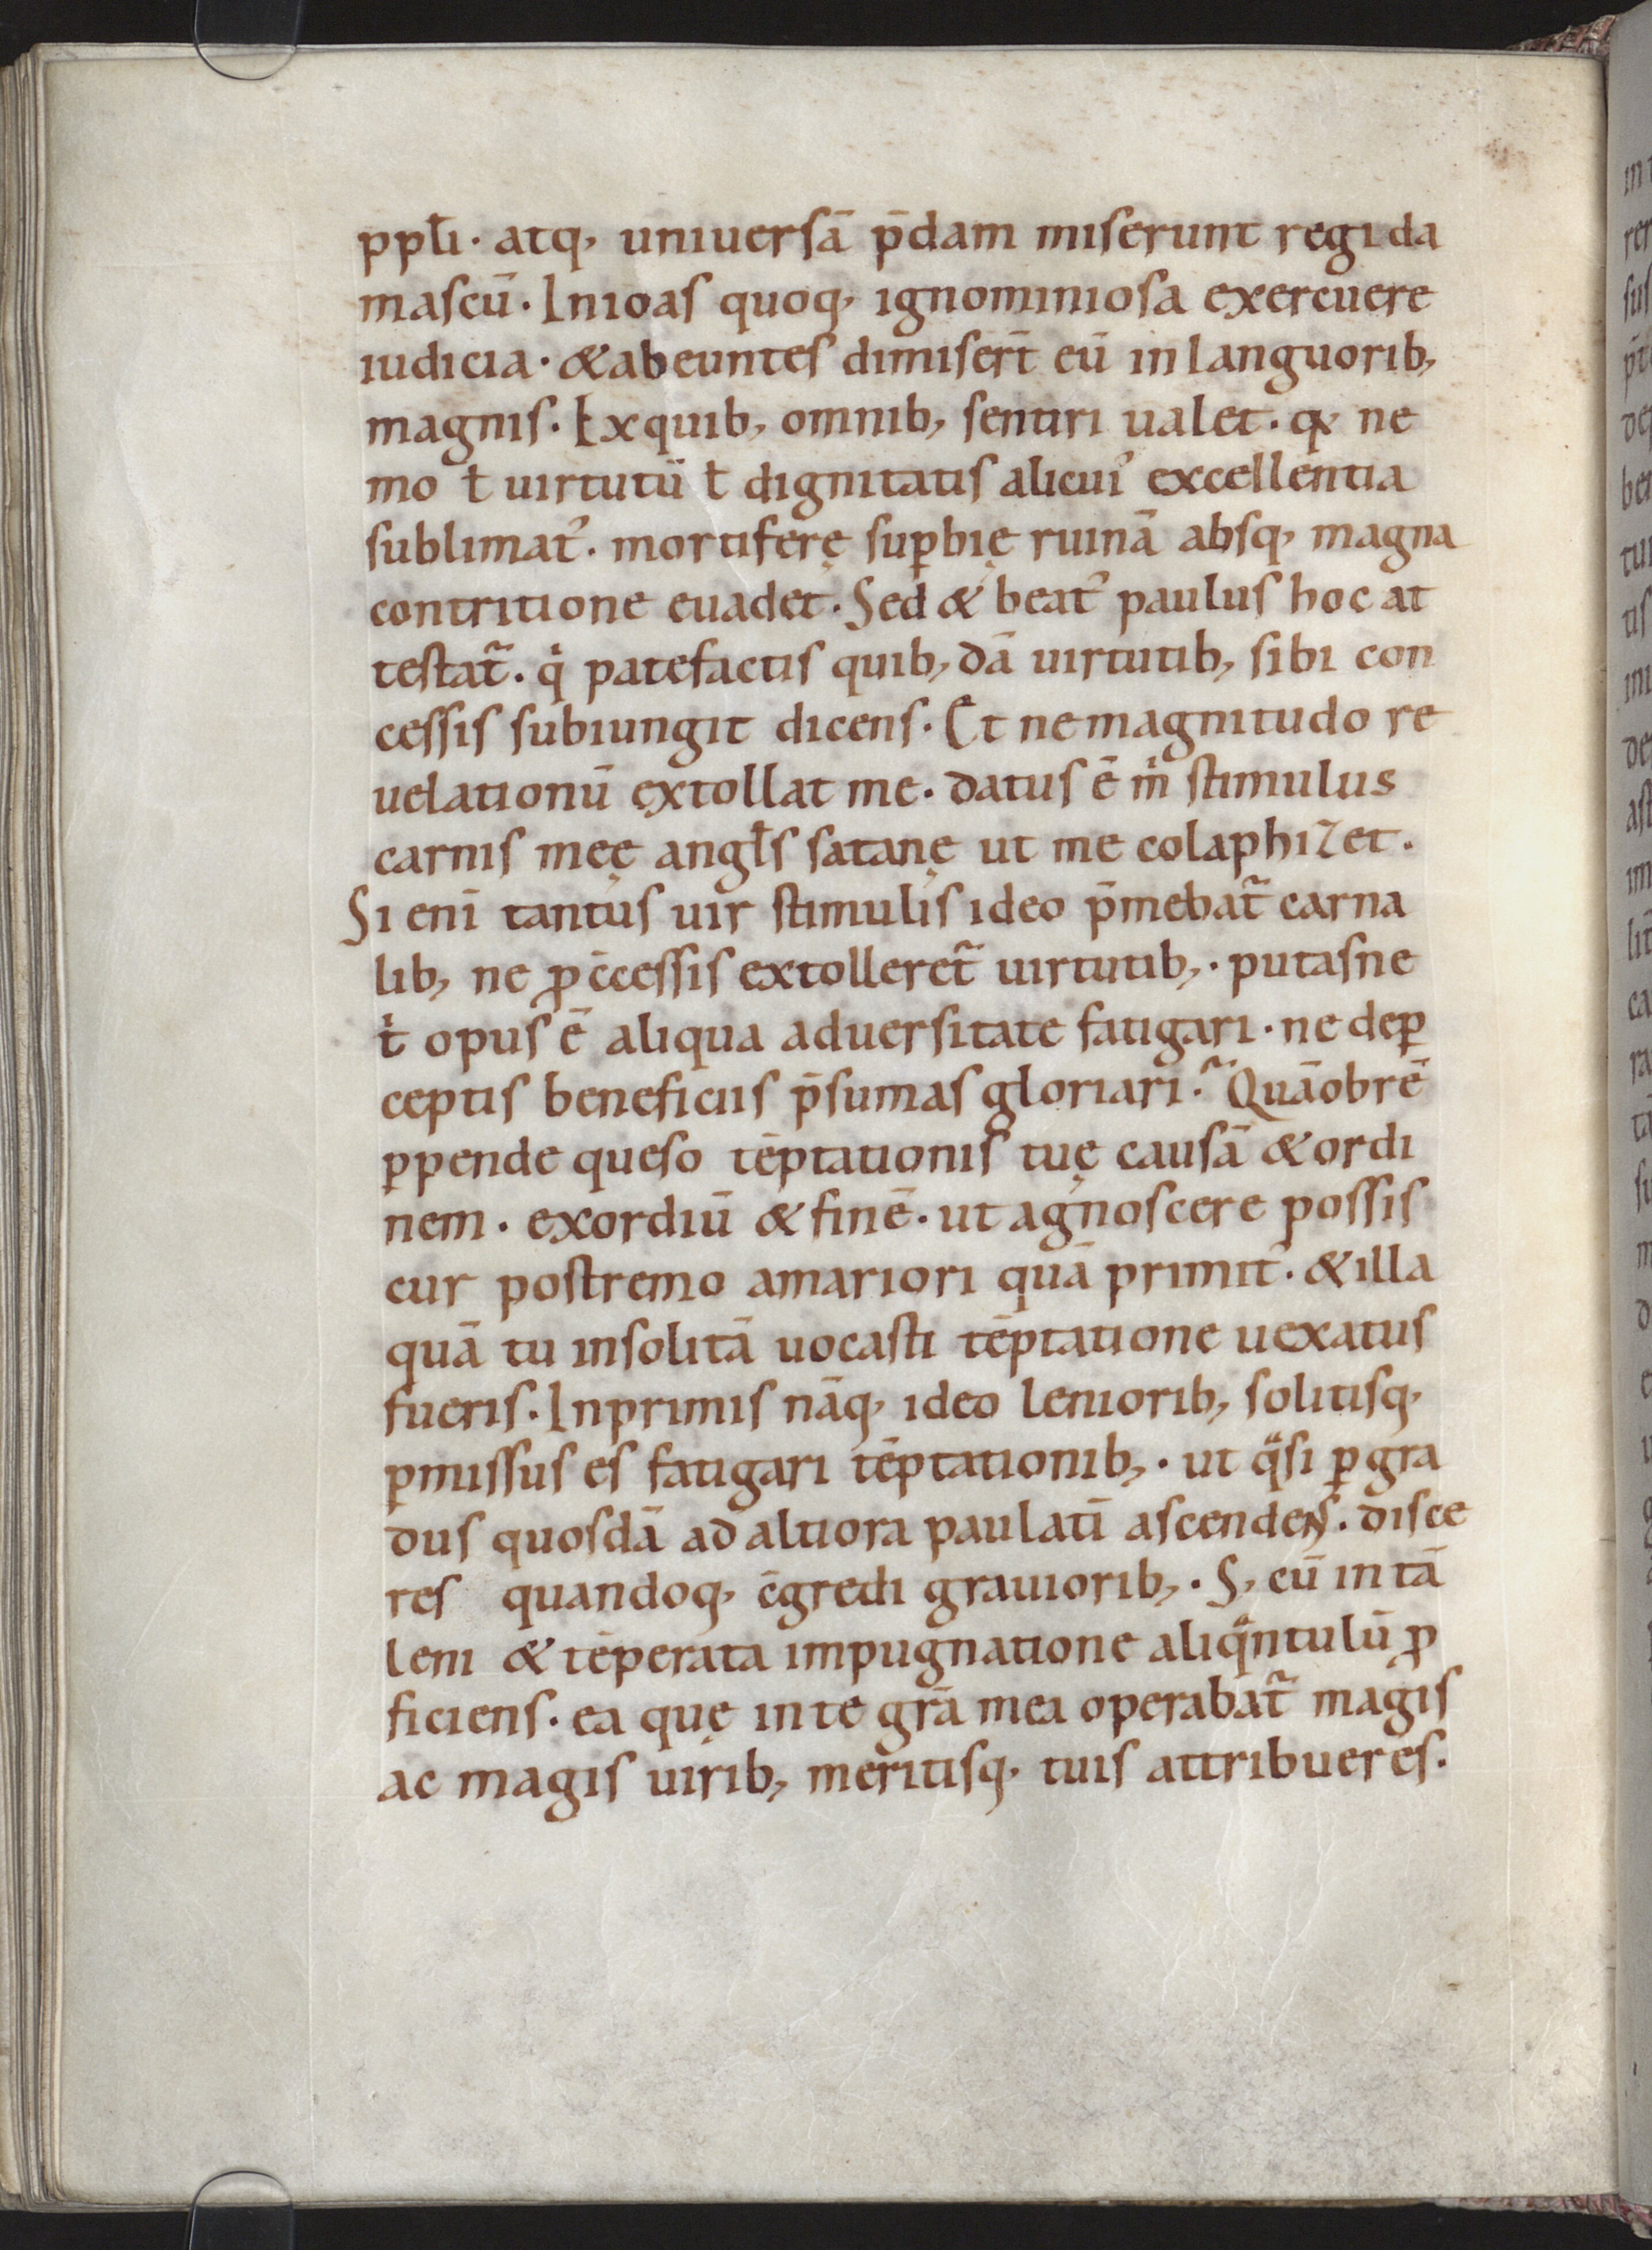 ppłi · atq, uniuersā p̄dam miserunt regi da
mascū · In ioas quoq, ignominiosa exercuere
iudicia · & abeuntes dimiser̄t eū in languorib,
magnis · Ex quib, omnib, sentiri ualet · qꝫ ne
mo ł uirtutū ł dignitatis alicui᾽ excellentia
sublimat᾽ · mortiferę suꝑbię ruinā absq, magna
contritione euadet · Sed & beat᾽ paulus hoc at
testat̃ · qͥ patefactis quib, dā uirtutib, sibi con
cessis subiungit dicens · Et ne magnitudo re
uelationū extollat me · datus ē m̍ stimulus
carnis meę angls̄ satanę ut me colaphizet ·
Si enī tantus uir stimulis ideo p̄mebat̃ carna
lib, ne ꝓ c̄cessis extolleret̃ uirtutib, · putasne
t̍ opus ē aliqua aduersitate fatigari · ne de ꝑ
ceptis beneficiis p̄sumas gloriari ·̃ Quāobrē
ꝑpende queso tēptationis tuę causā & ordi
nem · exordiū & finē · ut agnoscere possis
cur postremo amariori quā primit᾽ · & illa
quā tu insolitā uocasti tēptatione uexatus
fueris · Inprimis nāq, ideo leniorib, solitisq,
ꝑmissus es fatigari tēptationib, · ut qͣsi ꝑ gra
dus quosdā ad altiora paulatī ascendens · disce
res quandoq, c̄gredi grauiorib, · S, cū in tā
leni & tēperata impugnatione aliqͣntulū ꝓ
ficiens · ea quę in te gr̄a mea operabat̃ magis
ac magis uirib, meritisq, tuis attribueres ·